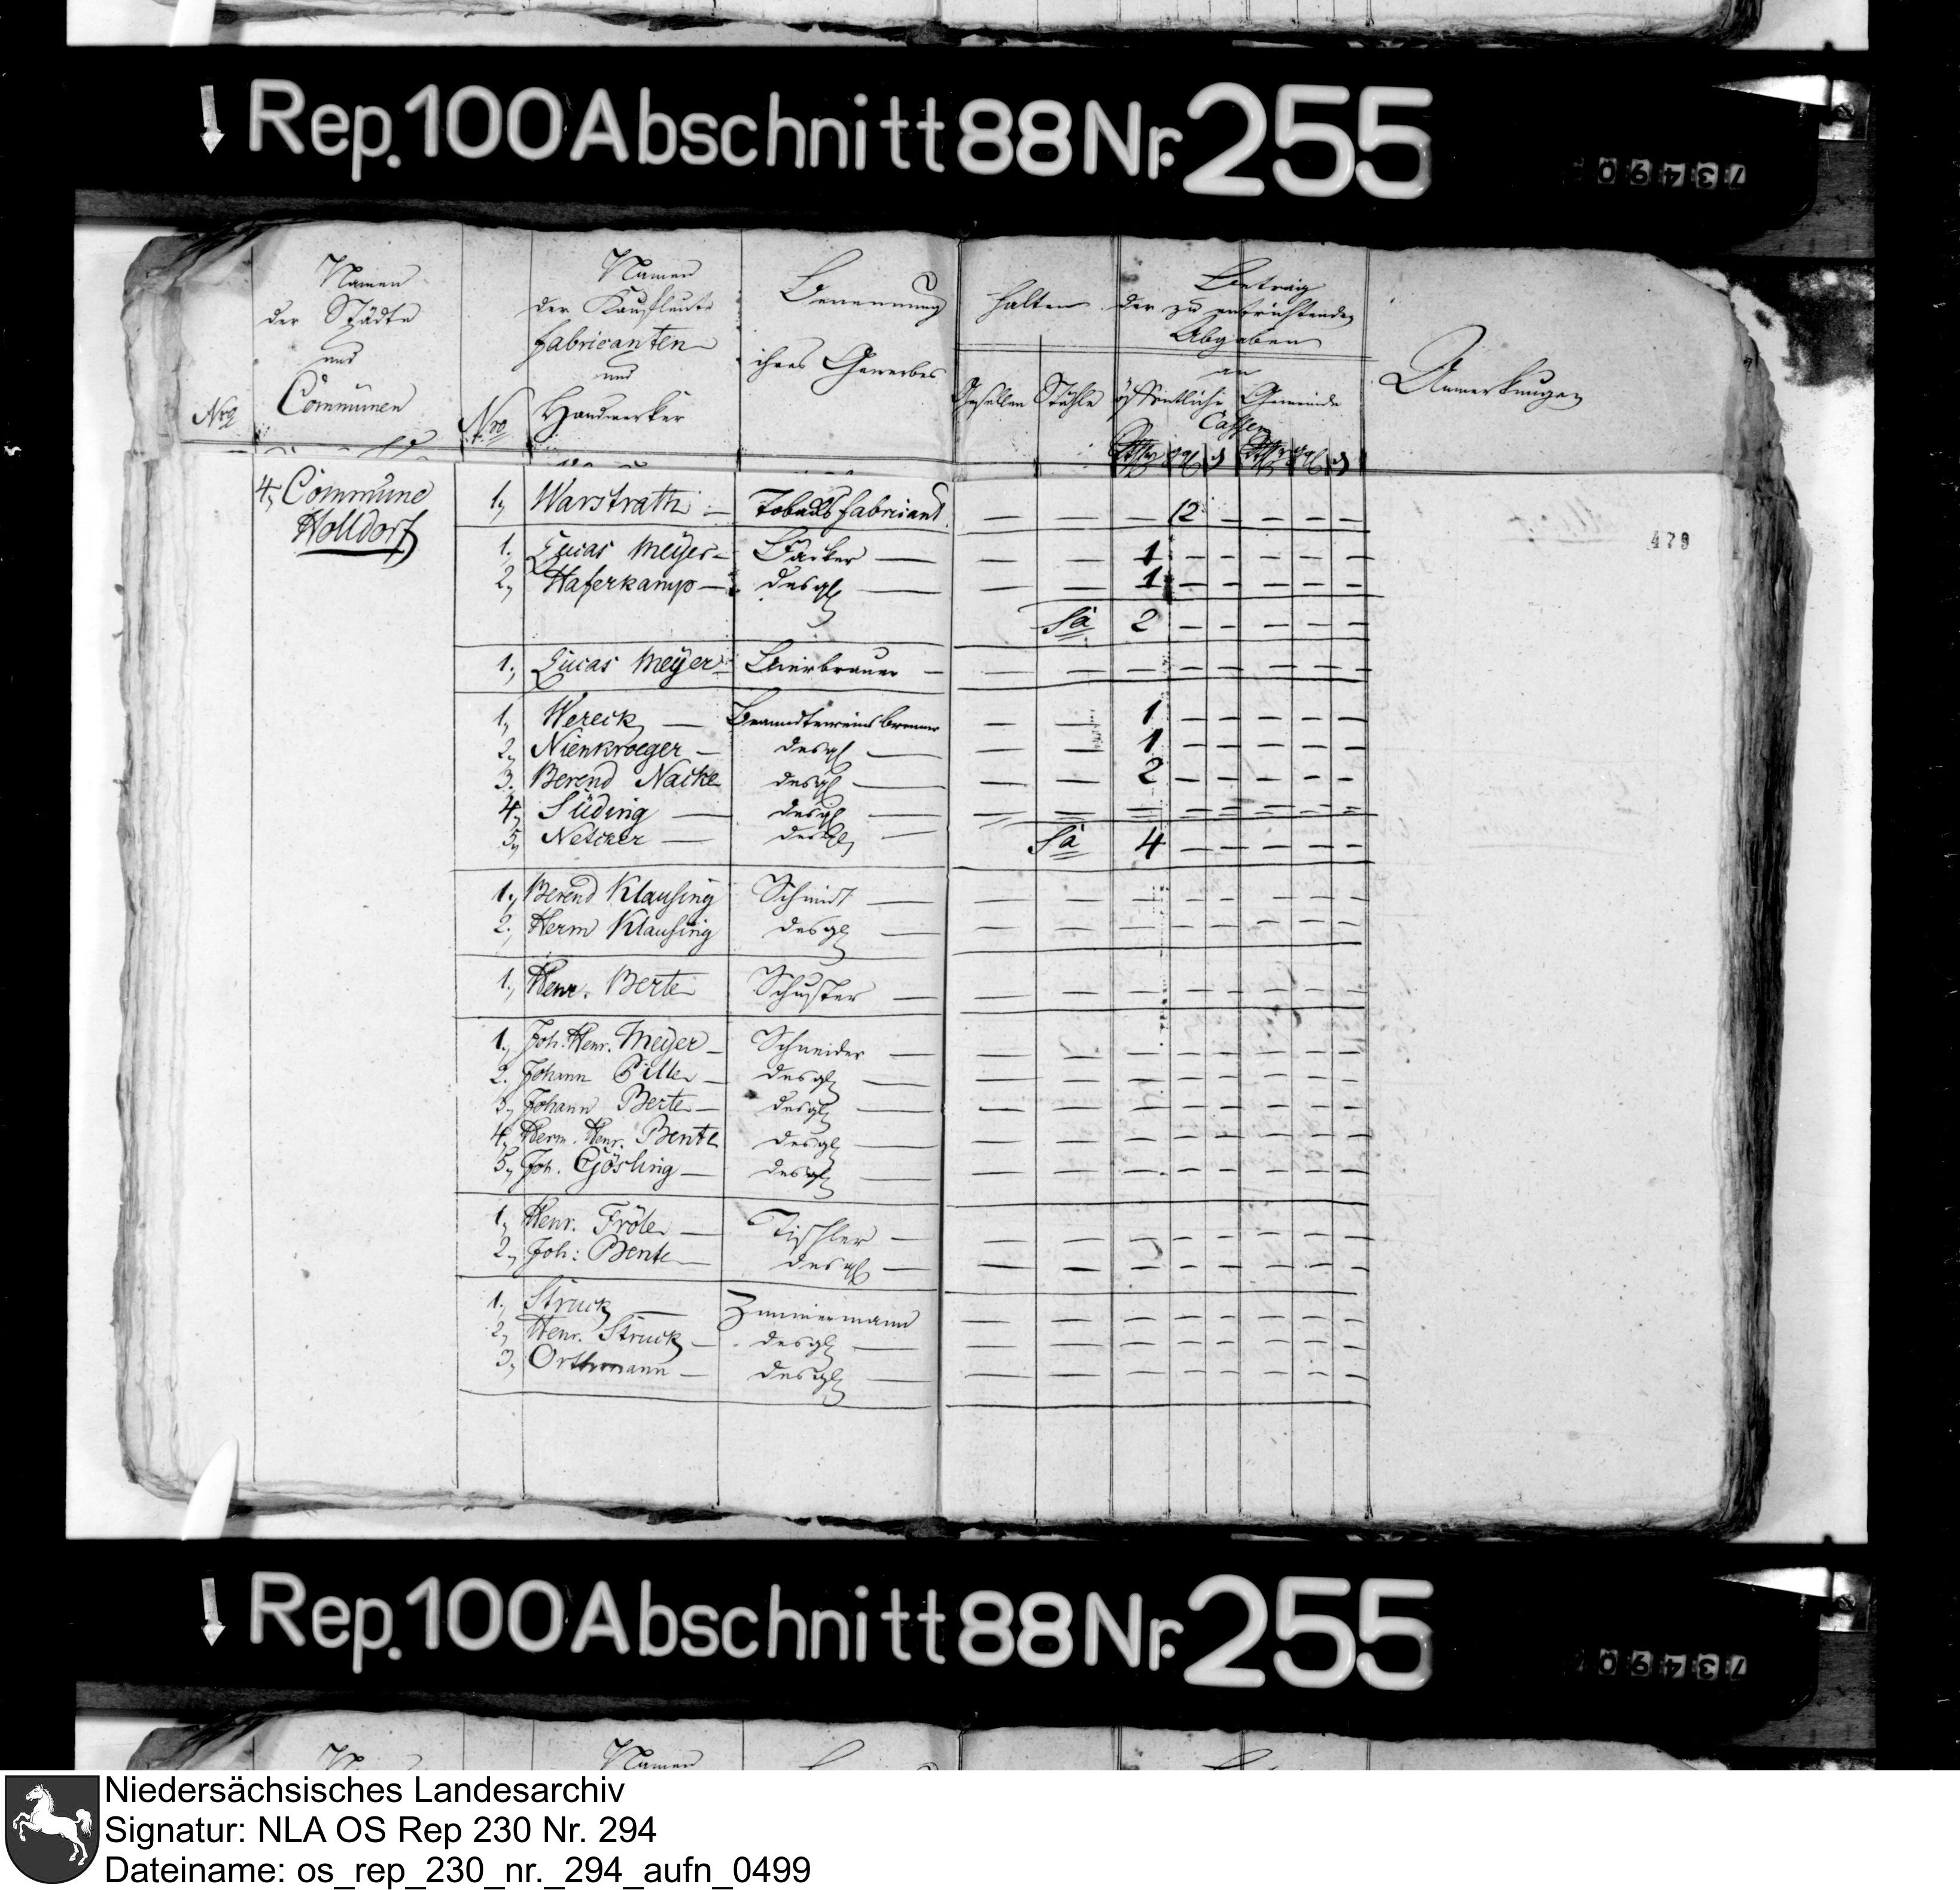 Rep. 100 Abschnitt 88 Nr. 255
73490
Nro
Namen
der Städte
und
Communen
Nro
Namen
der Kaufleute
fabricanten
und
Handwerker
Benennung
ihres Gewerbes
halten
Gesellen Stühle
Betrag
der zu entrichtenden
Abgaben
an
öffentliche Gemeinde
Cassen
Anmerkungen
479
4, Commune
Holldorf
1, Warstrath — Tobacks fabricant — — — 12 — — — —
1. Lucas Meyer — Bäcker — — — 1 — — — — —
2, Haferkamp — desgl — — — 1 — — — — —
Sa 2 — — — — —
1, Lucas Meyer — Bierbrauer — — — — — — — — —
1, Wereck — Brandteweinsbrenner — — 1 — — — — —
2, Nienkroeger — desgl — — — 1 — — — — —
3. Berend Nacke desgl — — — 2 — — — — —
4, Süding — desgl — — — — — — — — —
5, Netcher — desgl —
Sa 4 — — — — —
1, Berend Klausing Schmidt — — — — — — — — —
2, Herm Klausing desgl — — — — — — — — —
1, Henr. Berte Schuster — — — — — — — — —
1, Joh. Henr. Meyer — Schneider — — — — — — — — —
2. Johann — desgl — — — — — — — — —
3, Johann Berte — desgl — — — — — — — — —
4, Herm. Henr. Bente desgl — — — — — — — — —
5, Joh. Gösling — desgl — — — — — — — — —
1, Henr. Fröle — Tischler — — — — — — — — —
2, Joh: Bente — desgl — — — — — — — — —
1, Struck — Zimmermann — — — — — — — —
2, Henr. Struck — desgl — — — — — — — — —
3, Orthmann — desgl — — — — — — — — —
Rep. 100 Abschnitt 88 Nr. 255
73490
Namen
Niedersächsisches Landesarchiv
Signatur: NLA OS Rep 230 Nr. 294
Dateiname: os_rep_230_nr._294_aufn_0499